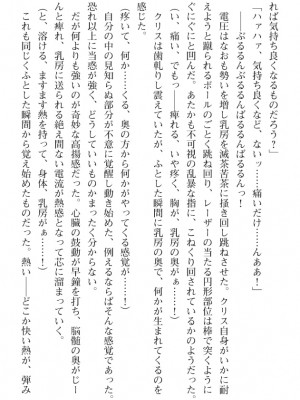 れば気持ち良くなるものだろう?」
「ハァハァ、気持ち良くなど、ないッ……痛いだけ……んああ!」
――ぶるんぶるぶるんっばるんばるんっ!
電圧はなおも勢いを増し乳房を滅茶苦茶に掻き回し跳ねさせた。クリス自身がいかに耐
えようと蹴られるボールのごとく跳ね回り、レーザーの当たる円形部位は棒で突くように
ぐにぐにと凹んだ。あたかも不可視の乱暴な指に、こねくり回されているかのようだった。
(い、痛い、でもっ……痺れる、いや、疼く、胸が、乳房の奥がぁ……!)
クリスは歯軋りし震えていたが、ふとした瞬間に乳房の奥で、何かが生まれてくるのを
感じた。
(疼いて、何か……くる、奥の方から何かがやってくる感覚が……!)
自分の中の見知らぬ部分が不意に覚醒し動き始めた、例えるならばそんな感覚であった。
恐れ以上に当惑が強く、どうしていいものかまったく分からない。
だが何よりも強いのが奇妙な高揚感だった。心臓の鼓動が早鐘を打ち、脳髄の奥がじー
んと痺れ、乳房に送られる絶え間ない電流が熱感となって芯に溜まっていく。
(と、溶ける、ますます熱を持って、身体、乳房がぁ……!)
これも同じくふとした瞬間から覚え始めたものだった。熱い――どこか快い熱が、弾み